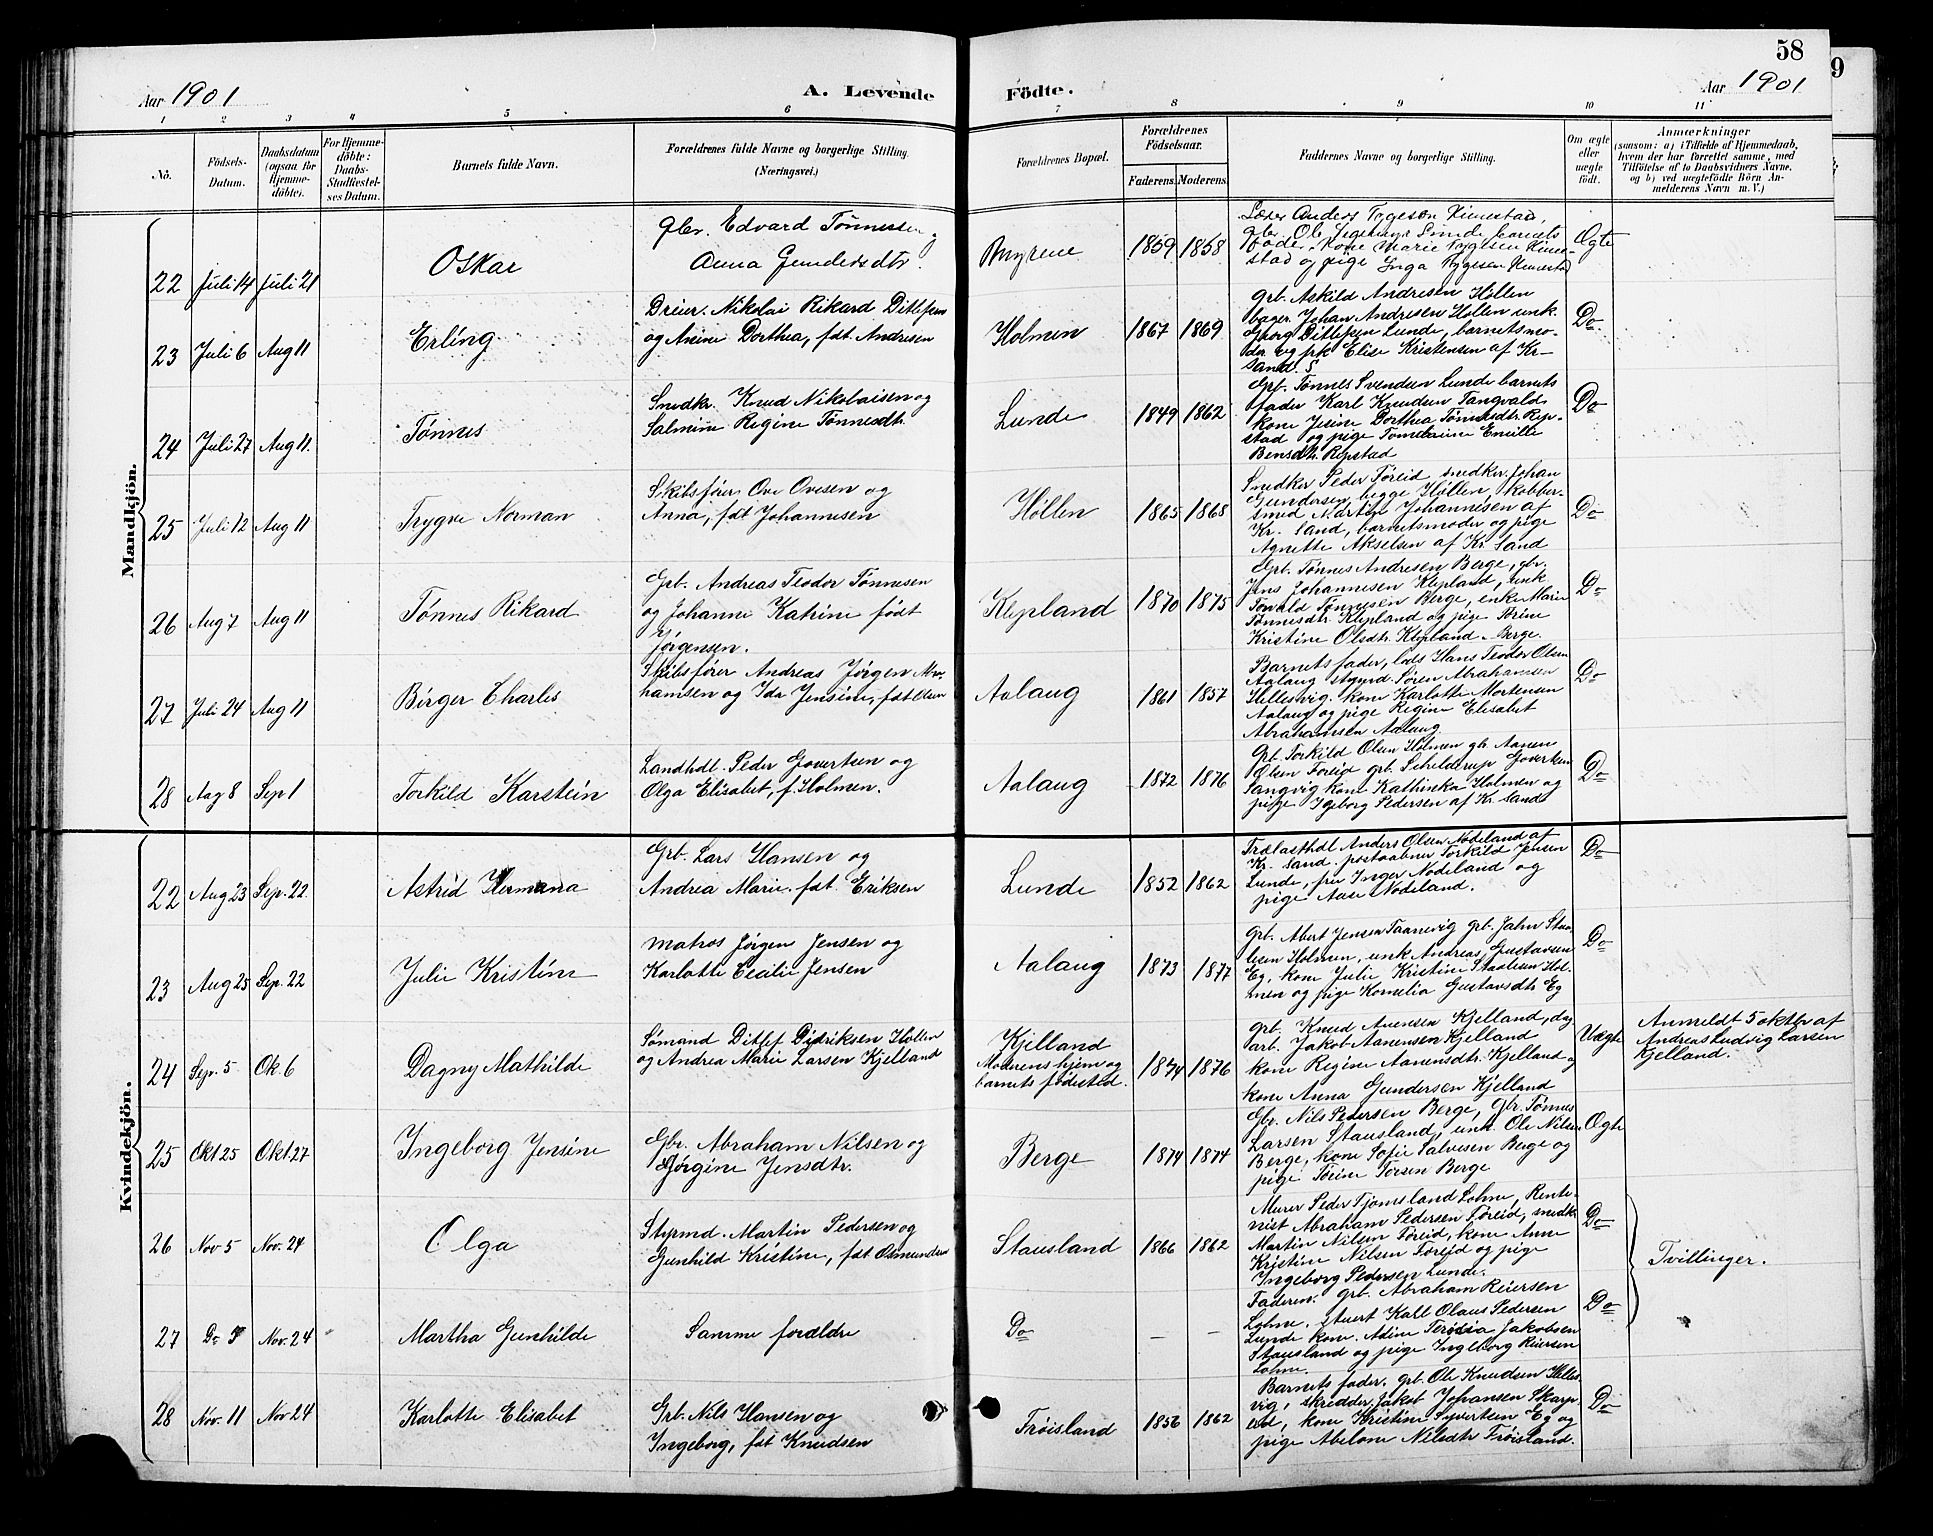 58
Aar 1901
A. Levende
Födte.
Aar 1901
1 2 3 4 5 6 7 8 9 10 11
No.
Födsels-
Datum.
Daabsdatum
(ogsaa for
Hjemme-
döbte).
For Hjemme-
döbte:
Daabs-
Stadfæstel-
ses Datum.
Barnets fulde Navn.
Forældrenes fulde Navne og borgerlige Stilling.
(Næringsvei.)
Forældrenes Bopæl.
Forældrenes
Födselsaar.
Faderens. Moderens.
Faddernes Navne og borgerlige Stilling.
Om ægte
eller
uægte
født.
Anmærkninger
(saasom: a) i Tilfælde af Hjemmedaab,
hvem der har forrettet samme, med
Tilföielse af to Daabsvidners Navne,
og b) ved uægtefödte Börn An-
melderens Navn m. V.)
Mandkjön.
22 Juli 14 Juli 21
Oskar
gbr. Edvard Tønnessen og
Anna Gundersdtr.
Myrene
1859 1858
Anders Tygesen
fader. kone Marie Tygesen
stad og pige Inga Tygesen
Ægte
23 Juli 6 Aug 11
Erling
Dreier. Nikolai Rikard Ditlefsen
og Anine Dorthea, født Andresen
Holmen
1867 1869
Grb. Askild Andresen Høllen
bager. Johan Andresen Høllen unk.
Georg Ditlefsen Lunde, barnetsmo-
der og frk Elise Kristensen af Kr-
sand. S
Do
24 Juli 27 Aug 11.
Tønnes
Snedkr. Knud Nikolaisen og
Salmine Regine Tønnesdtr.
Lunde
1849 1862
Grb. Tønnes Svendsen Lunde barnets
fader Karl Knudsen Tangvald,
kone Jesine Dorthea Tønnesdtr. Rep-
stad og pige Emilie
Bensdtr. Repstad
Do
25 Juli 12 Aug 11
Trygve Norman
Skibsfører Ove Ovesen og
Anna, født Johannesen
Høllen
1865 1868
Snedker Peder Føreid, snedker. Johan
Gundersen, begge Høllen, kobber-
smed Martin Johannesen af
Kr. sand, barnetsmoder og pige
Agnette Akselsen af Kr. sand
Do
26 Aug 7 Aug 11
Tønnes Rikard
Grb. Andreas Teodor Tønnesen
og Johanne Katrine født
Jørgensen.
Klepland
1870 1875
Grb. Tønnes Andresen Berge, gbr.
Jens Johannesen Klepland, unk
Torvald Tønnesen Berge, enke Marie
Tønnesdtr. Klepland og pige Torine
Kristine Olsdtr. Klepland. Berge.
Do
27 Juli 24 Aug 11
Birger Charles
Skibsfører Andreas Jørgen Abra-
hamsen og Ida Jensine, født Olsen
Aalaug
1861 1857
Barnets fader, lods Hans Teodor Olsen
Aalaug styrmd. Søren Abrahamsen
Hellesvig. kone Karlotte Mortensen
Aalaug og pige Regine Elisabet
Abrahamsen Aalaug
Do
28 Aug 8 Sep 1
Torkild Karstein
Landhdl. Peder Govertsen og
Olga Elisabet, f. Holmen.
Aalaug
1872 1876
Grb. Torkild Olsen Holmen gb. Aanen
Olsen Føreid grb. Schildtrup Govertsen
Langvig kone Kathinka Holmen og
pige Ingeborg Pedersen af Kr. sand
Do
Kvindekjön.
22 Aug 23 Sep. 22
Astrid Hermana
Grb. Lars Hansen og
Andrea Marie. født Eriksen
Lunde
1852 1862
Trælasthdl Anders Olsen Nodeland af
Kr. sand. postaabner Torkild Jensen
Lunde, fru Inger Nodeland og
pige Aase Nodeland.
Do
23 Aug 25 Sep. 22
Julie Kristine
Matros Jørgen Jensen og
Karlotte Cecilie Jensen
Aalaug
1873 1877
Grb. Abert Jensen Taanevig grb. Jahn Staa-
lesen Holmen, unk Andreas Gustavsen
Eg, kone Julie Kristine Staalesen Hol-
men og pige Kornelia Gustavsdtr Eg
Do
24 Sep. 5 Ok. 6
Dagny Mathilde
Sømand Ditlef Didriksen Høllen
og Andrea Marie Larsen Kjelland
Kjelland
Moderens hjem og
barnets fødested.
1874 1876
grb. Knud Avensen Kjelland, dag
arb. Jakob Aanensen Kjelland
kone Regine Aanensdtr. Kjelland og
kone Anna Gundersen Kjelland
Uægte
Anmeldt 5 oktbr af
Andreas Ludvig Larsen
Kjelland.
25 Okt 25 Okt 27
Ingeborg Jensine
Gbr. Abraham Nilsen og
Jørgine Jensdtr.
Berge
1874 1874
Gbr. Nils Pedersen Berge, Gbr. Tønnes
Larsen Stausland, unk. Ole Nilsen
Berge, kone Sofie Salvesen Berge og
pige Torine Torsen Berge
Ægte
26 Nov 5 Nov. 24
Olga
Styrmd. Martin Pedersen og
Gunhild Kristine, født Osmundsen
Stausland
1866 1862
Murer Peder Tjomsland Lohne, Rente-
nist Abraham Pedersen Føreid, snedk.
Martin Nilsen Føreid, kone Anne
Kristine Nilsen Føreid og pige
Ingeborg Pedersen Lunde.
Do
Tvillinger.
27 Do 5 Nov. 24
Martha Gunhilde
Samme forældre
Do
– –
Faderen. grb. Abraham Reiersen
Lohne. stuert Karl Olaus Pedersen
Lunde kone. Adine Teresia Jakobsen
Stausland og pige Ingeborg Reiersen
Lohne.
Do
28 Nov. 11 Nov 24
Karlotte Elisabet
Grb. Nils Hansen og
Ingeborg, født Knudsen
Frøisland
1856 1862
Barnets fader. grb. Ole Knudsen Helles-
vig, skredder Jakob Johansen Skarp-
eid, kone Kristine Syvertsen Eg og
pige Abelone Nilsdtr Frøisland.
Do